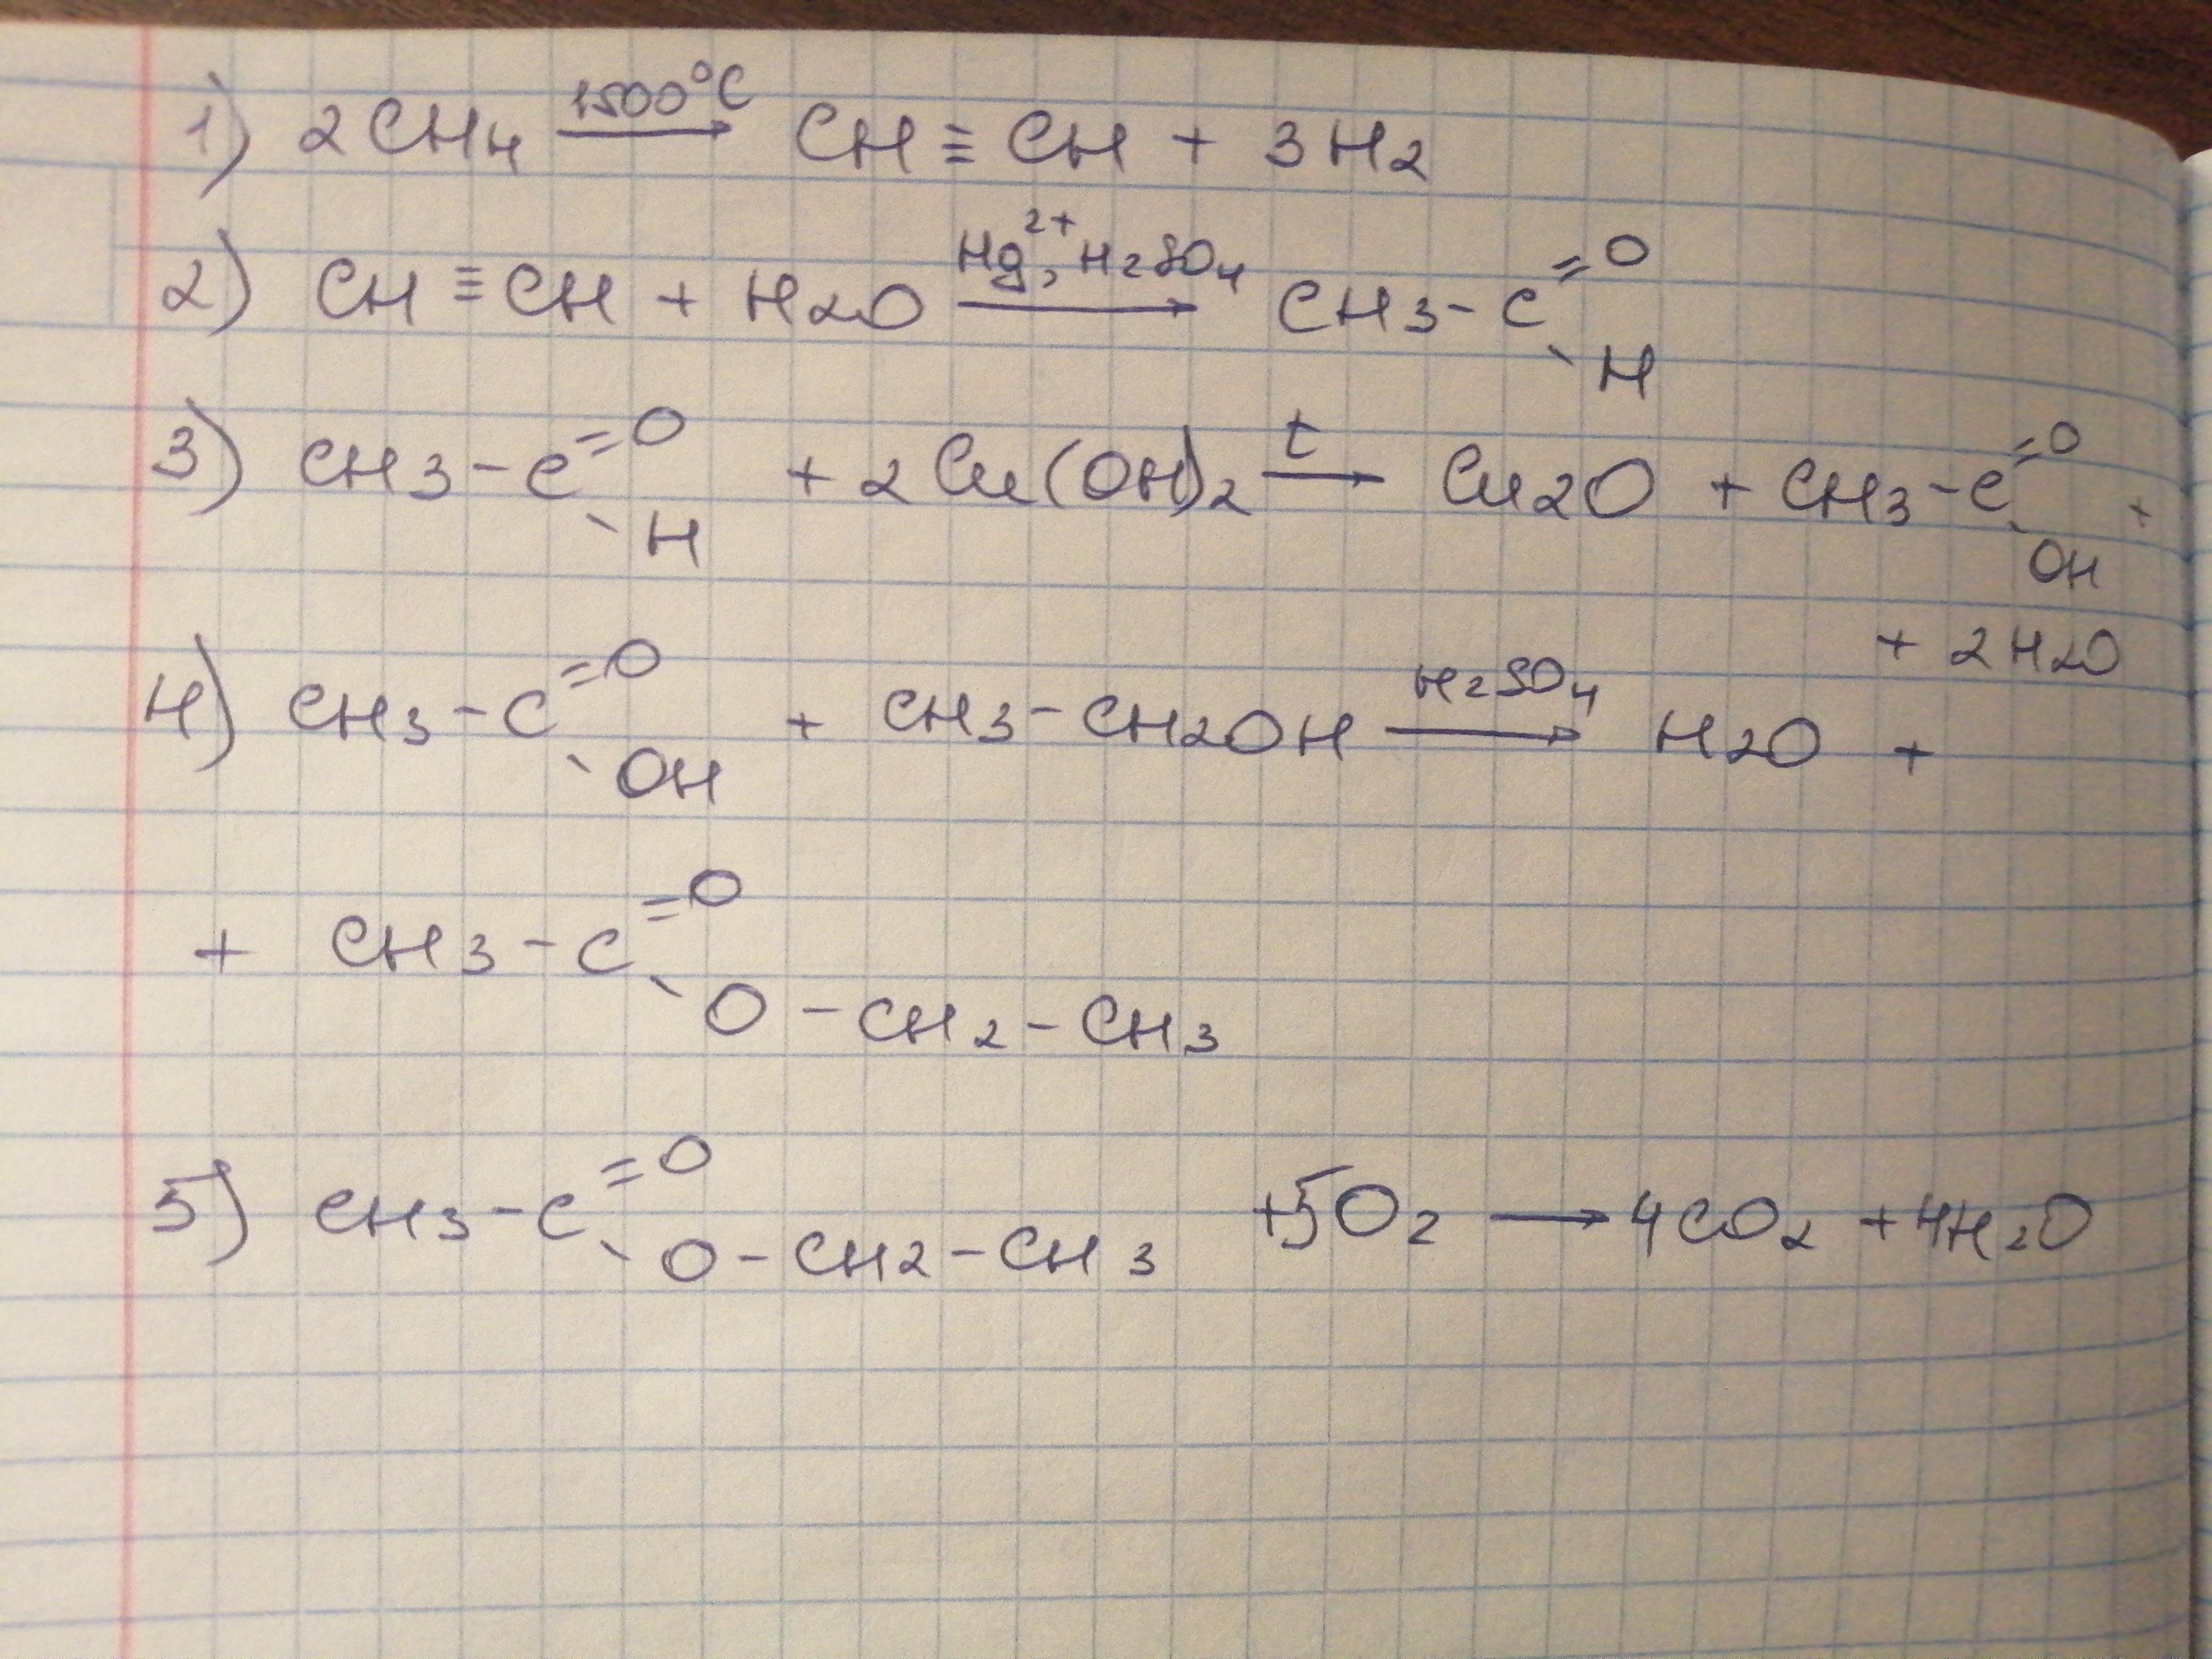 1) 2CH4 1500°C → CH≡CH + 3H2
2) CH≡CH + H2O Hg2+, H2SO4 → CH3-C=O -H
3) CH3-C=O -H + 2Cu(OH)2 t → Cu2O + CH3-C=O -OH +
+ 2H2O
4) CH3-C=O -OH + CH3-CH2OH H2SO4 → H2O +
+ CH3-C=O -O-CH2-CH3
5) CH3-C=O -O-CH2-CH3 +5O2 → 4CO2 +4H2O